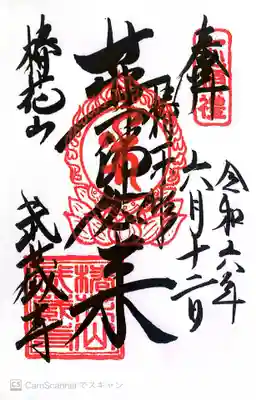 奉拝
令和六年
六月十二日
薬師如来
椿花山
武蔵寺
CS CamScannerでスキャン